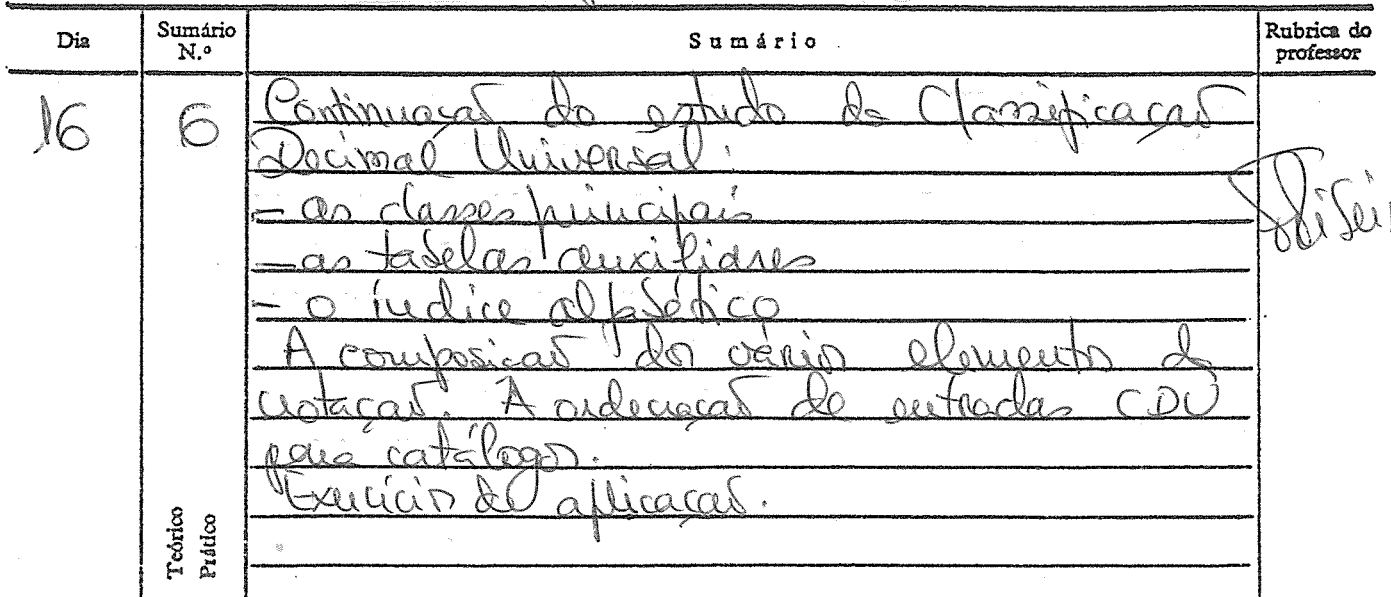 Dia Sumário N.º Sumário Rubrica do professor
16 6 Continuação do estudo da Classificação
Decimal Universal:
- as classes principais
- as tabelas auxiliares
- o índice alfabético
A composição dos vários elementos da
notação. A ordenação de entradas CDU
para catálogos.
Exercícios de aplicação.
Teórico
Prático